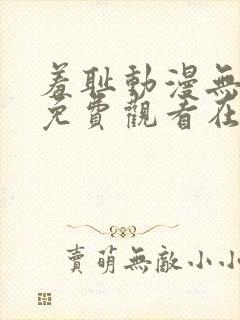 羞耻動漫無
免費觀看在
賣萌無敵小小